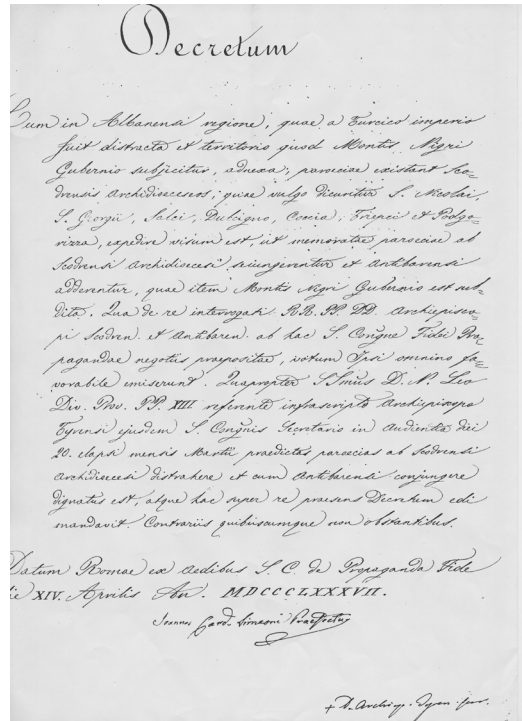 Decretum
Cum in Albanensi regione, quae a Turcico imperio
fuit distracta et territorio quod Montis Nigri
Gubernio subjicitur, adnexa, paroeciae existant Sco=
drensis Archidioeceseos; quae vulgo dicuntur S. Nicolai,
S. Georgii, Salci, Dulcigno, Coccia, Trepci et Podgo=
rizza, expedire visum est, ut memoratae paroeciae ab
Scodrensi Archidioecesi seiungerentur et Antibarensi
adderentur, quae item Montis Nigri Gubernio est sub=
dita. Qua de re interrogati RR. PP. DD. Archiepisco=
pi Scodren. et Antibaren. ab hac S. Congne Fidei Pro=
pagandae negotiis praeposita, votum Ipsi omnino fa=
vorabile emiserunt. Quapropter SSmus D. N. Leo
Div. Prov. PP. XIII referente infrascripto Archiepiscopo
Tyrensi ejusdem S. Congnis Secretario in Audientia diei
20. elapsi mensis Martii praedictas paroecias ab Scodrensi
Archidioecesi distrahere et cum Antibarensi conjungere
dignatus est, atque hac super re praesens Decretum edi
mandavit. Contrariis quibuscumque non obstantibus.
Datum Romae ex Aedibus S. C. de Propaganda Fide
die XIV. Aprilis An. MDCCCCLXXXVII.
Joannes Card. Simeoni Praefectus
+ D. Archiep. Tyren. Secr.